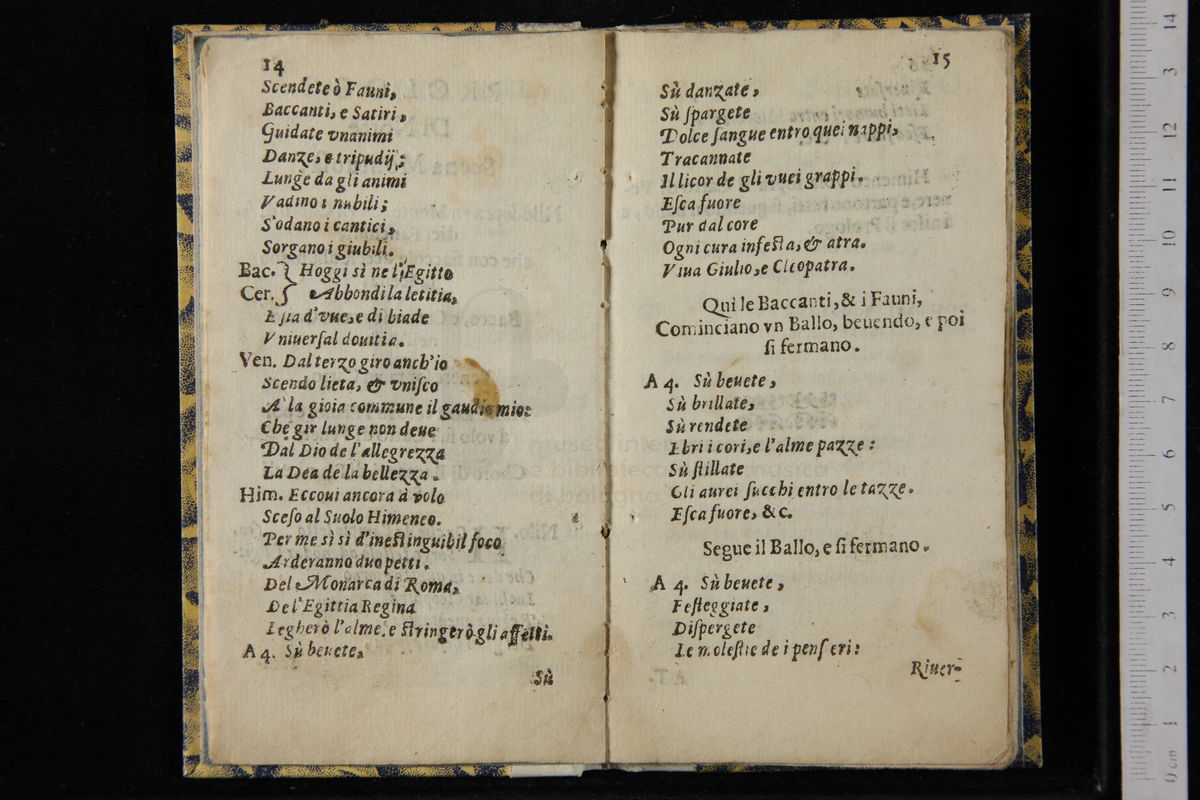 14
Scendete ò Fauni,
Baccanti, e Satiri,
Guidate vnanimi
Danze, e tripudij;
Lunge da gli animi
Vadino i nubili;
S'odano i cantici,
Sorgano i giubili.
Bac. } Hoggi sì ne l'Egitto
Cer. } Abbondi la letitia,
E sia d'vue, e di biade
Vniuersal douitia.
Ven. Dal terzo giro anch'io
Scendo lieta, & vnisco
A' la gioia commune il gaudio mio:
Che gir lunge non deue
Dal Dio de l'allegrezza
La Dea de la bellezza.
Him. Eccoui ancora à volo
Sceso al Suolo Himeneo.
Per me sì sì d'inestinguibil foco
Arderanno duo petti.
Del Monarca di Roma,
De l'Egittia Regina
Legherò l'alme, e stringerò gli affetti.
A 4. Sù beuete,
Sù
15
Sù danzate,
Sù spargete
Dolce sangue entro quei nappi,
Tracannate
Il licor de gli vuei grappi.
Esca fuore
Pur dal core
Ogni cura infesta, & atra.
Viua Giulio, e Cleopatra.
Quì le Baccanti, & i Fauni,
Cominciano vn Ballo, beuendo, e poi
si fermano.
A 4. Sù beuete,
Sù brillate,
Sù rendete
Ebri i cori, e l'alme pazze:
Sù stillate
Gli aurei succhi entro le tazze.
Esca fuore, &c.
Segue il Ballo, e si fermano.
A 4. Sù beuete,
Festeggiate,
Dispergete
Le molestie de i penseri:
Riuer-